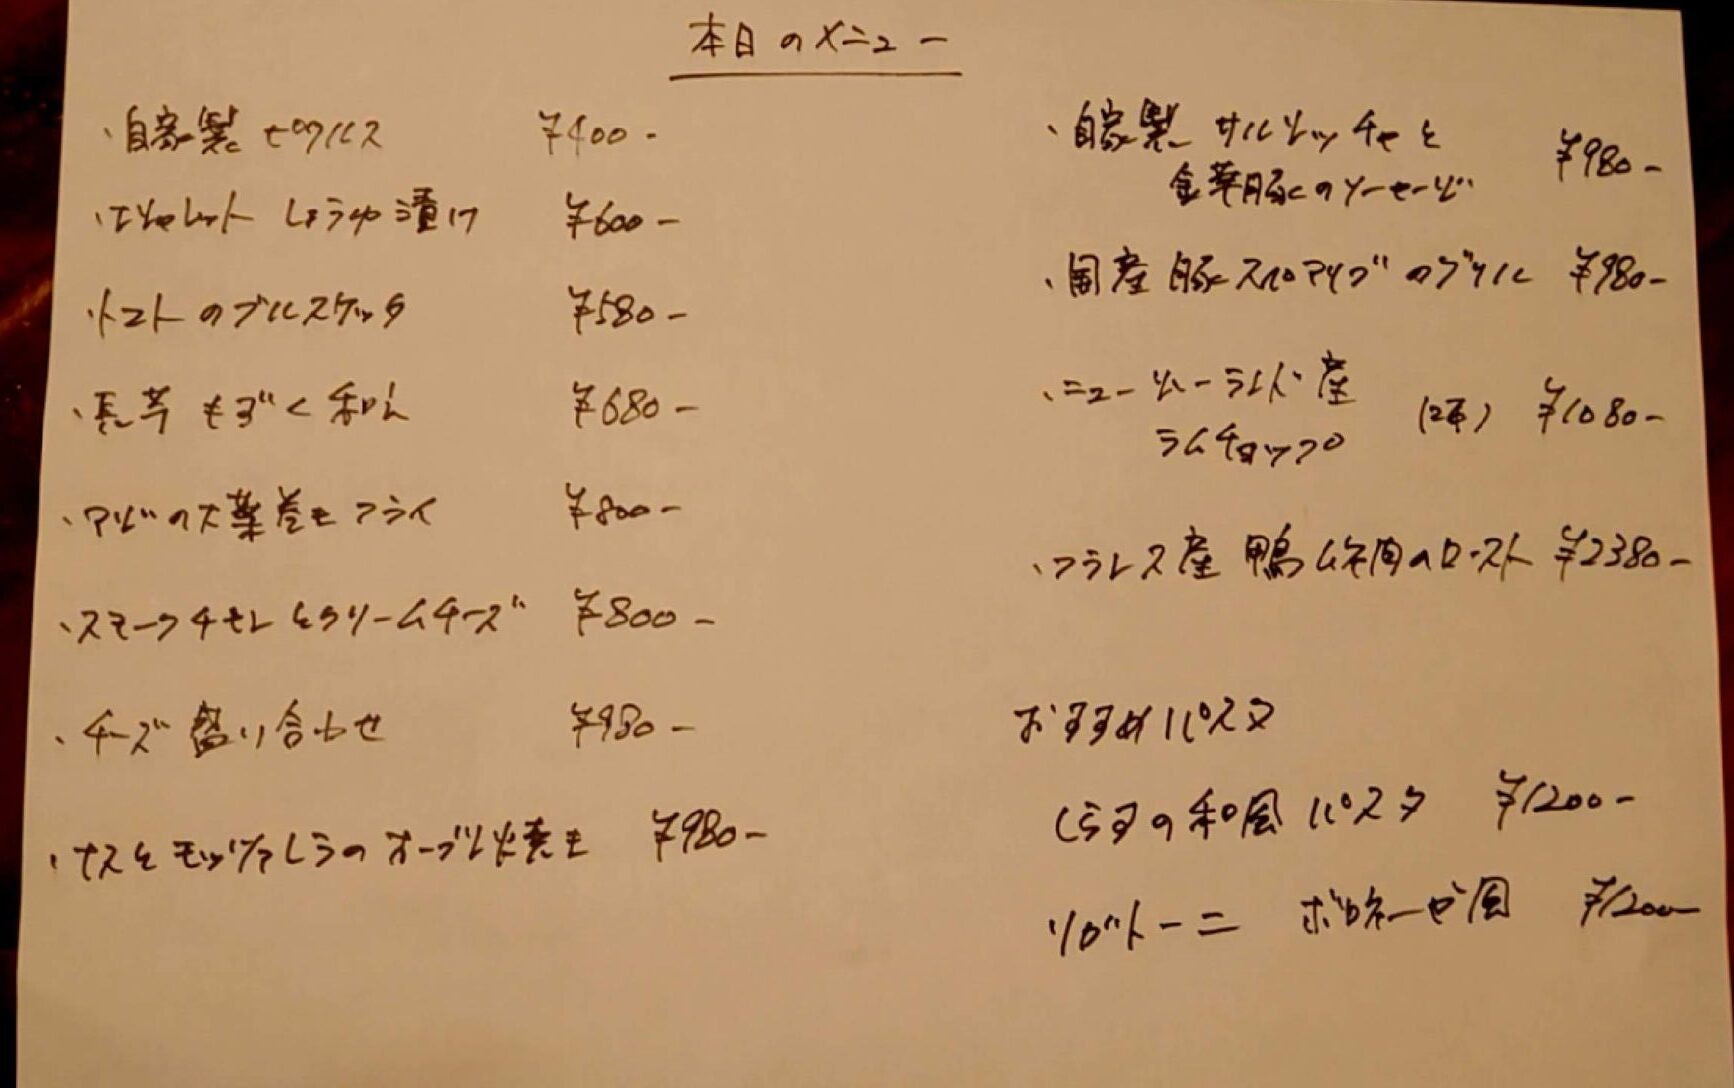 本日のメニュー
・自家製ピクルス ¥400-
・エシャレットしょうゆ漬け ¥600-
・トマトのブルスケッタ ¥580-
・長芋もずく和え ¥680-
・アジの大葉巻きフライ ¥800-
・スモークチキンとクリームチーズ ¥800-
・チーズ盛り合わせ ¥980-
・ナスとモッツァレラのオーブン焼き ¥980-
・自家製サルシッチャと
金華豚のソーセージ ¥980-
・国産豚スペアリブのグリル ¥980-
・ニュージーランド産
ラムチョップ (2本) ¥1080-
・フランス産鴨ムネ肉のロースト ¥2380-
おすすめパスタ
しらすの和風パスタ ¥1200-
リガトーニ ボロネーゼ風 ¥1200-